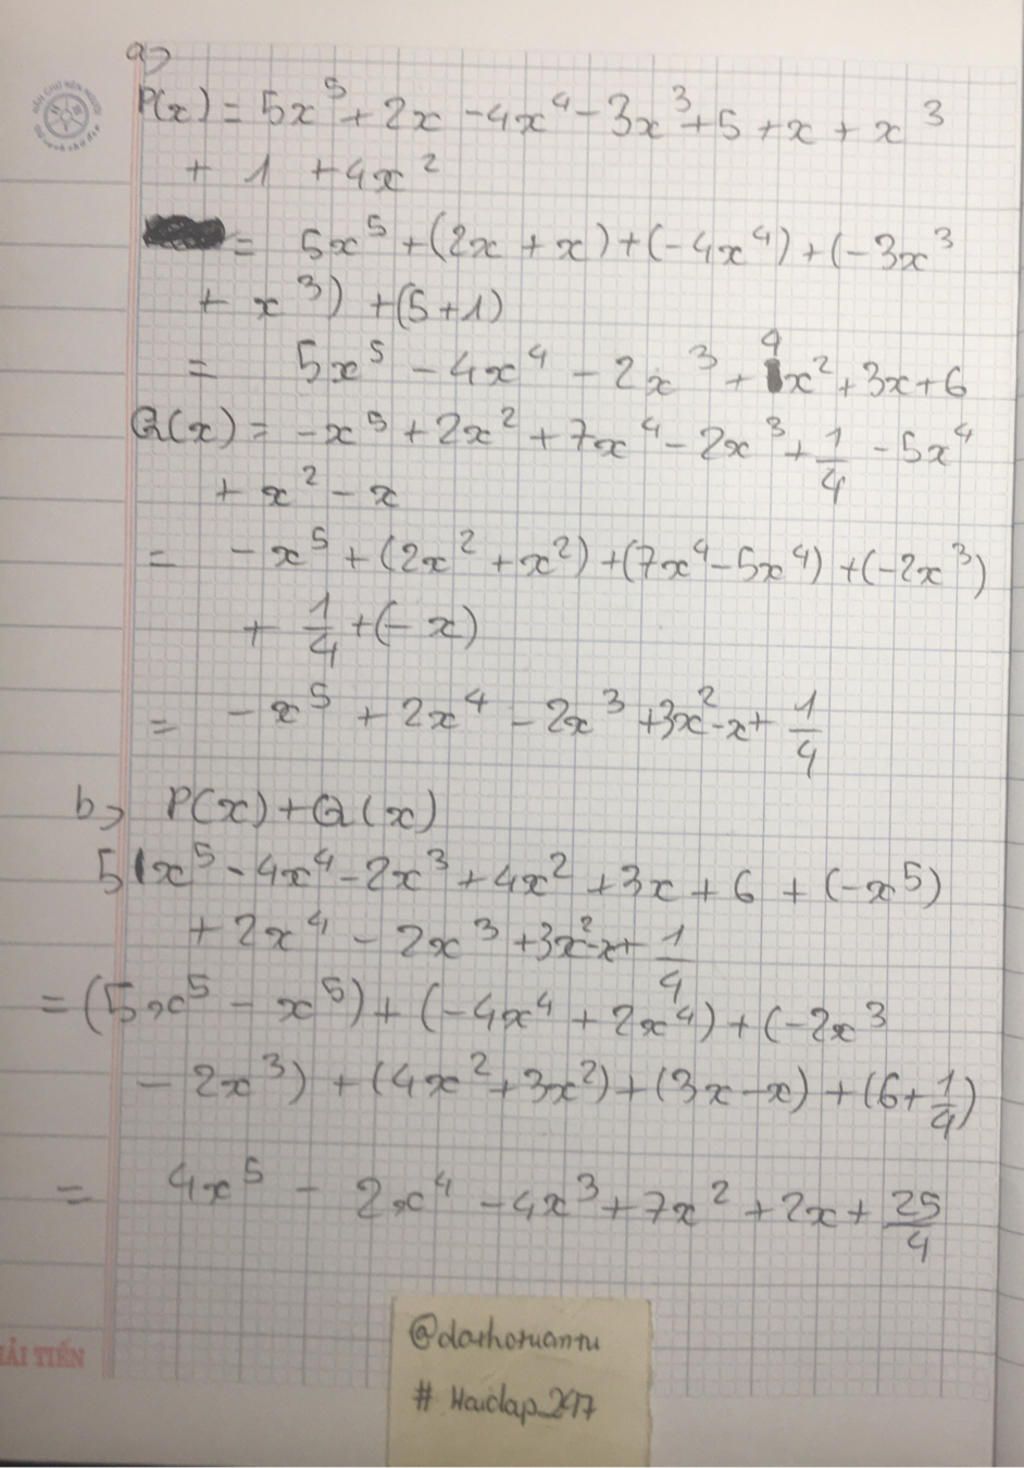 a)
P(x) = 5x⁵ + 2x - 4x⁴ - 3x³ + 5 + x + x³
+ 1 + 4x²
= 5x⁵ + (2x + x) + (-4x⁴) + (-3x³
+ x³) + (5+1)
= 5x⁵ - 4x⁴ - 2x³ + 4x² + 3x + 6
Q(x) = -x⁵ + 2x² + 7x⁴ - 2x³ + 1/4 - 5x⁴
+ x² - x
= -x⁵ + (2x² + x²) + (7x⁴ - 5x⁴) + (-2x³)
+ 1/4 + (-x)
= -x⁵ + 2x⁴ - 2x³ + 3x² - x + 1/4
b) P(x) + Q(x)
5x⁵ - 4x⁴ - 2x³ + 4x² + 3x + 6 + (-x⁵)
+ 2x⁴ - 2x³ + 3x² - x + 1/4
= (5x⁵ - x⁵) + (-4x⁴ + 2x⁴) + (-2x³
- 2x³) + (4x² + 3x²) + (3x - x) + (6 + 1/4)
= 4x⁵ - 2x⁴ - 4x³ + 7x² + 2x + 25/4
# Hoidap_247
ẢI TIẾN